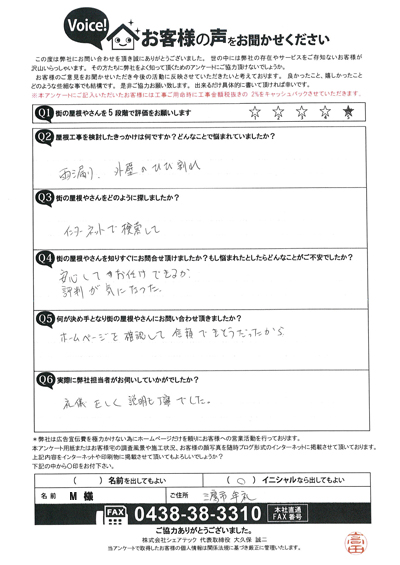 Voice!
お客様の声をお聞かせください
この度は弊社にお問い合わせを頂き誠にありがとうございました。世の中には弊社の存在やサービスをご存知ないお客様が
沢山いらっしゃいます。その方たちに弊社をよく知って頂くためのアンケートにご協力頂けないでしょうか。
お客様のご意見をお聞かせいただき今後の活動に反映させていただきたいと考えております。良かったこと、嬉しかったこと
どのような些細な事でも結構です。是非ご協力お願い致します。出来るだけ具体的に書いて頂ければ幸いです。
※本アンケートにご記入いただいたお客様には工事ご用命時に工事金額税抜きの2%をキャッシュバックさせていただきます。
Q1 街の屋根やさんを5段階で評価をお願いします ☆ ☆ ☆ ☆ ★
Q2 屋根工事を検討したきっかけは何ですか?どんなことで悩まれていましたか?
雨漏り、外壁のひび割れ
Q3 街の屋根やさんをどのように探しましたか?
インターネットで検索して
Q4 街の屋根やさんを知りすぐにお問合せ頂けましたか?もし悩まれたとしたらどんなことがご不安でしたか?
安心してお任せできるか
評判が気になった。
Q5 何が決め手となり街の屋根やさんにお問い合わせ頂きましたか?
ホームページを確認して信頼できそうだったから
Q6 実際に弊社担当者がお伺いしていかがでしたか?
礼儀正しく説明も丁寧でした。
＊弊社は広告宣伝費を極力かけない為にホームページだけを頼りにお客様への営業活動を行っております。
本アンケート用紙またはお客様宅の調査風景や施工状況、お客様の顔写真を随時ブログ形式のインターネットに掲載させて頂いております。
上記内容をインターネットや印刷物に掲載させて頂いてもよろしいでしょうか?
下記の中から〇印をお付下さい。
( ) 名前を出してもよい ( 〇 ) イニシャルなら出してもよい
名前 M 様 ご住所
FAX 0438-38-3310 本社直通 FAX番号
ご協力ありがとうございました。
株式会社シェアテック 代表取締役 大久保 誠二
当アンケートで取得したお客様の個人情報は関係法規に基づき厳正に管理いたします。